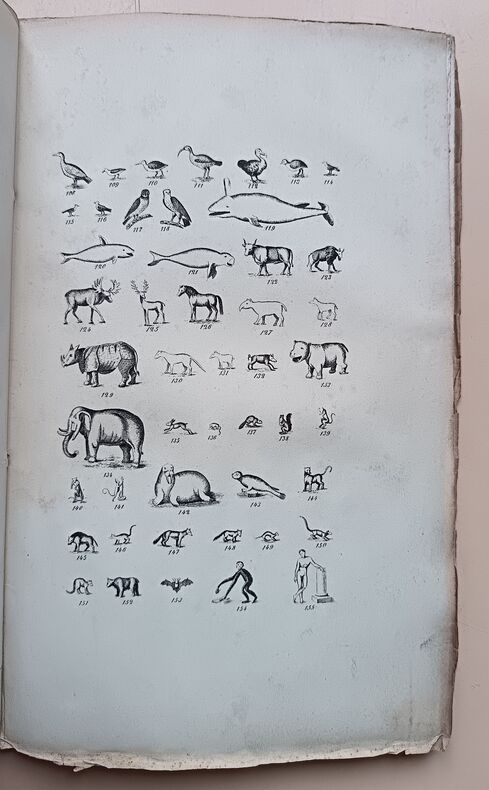 108 109 110 111 112 113 114
115 116 117 118 119
120 121 122 123
124 125 126 127 128
129 130 131 132 133
134 135 136 137 138 139
140 141 142 143 144
145 146 147 148 149 150
151 152 153 154 155